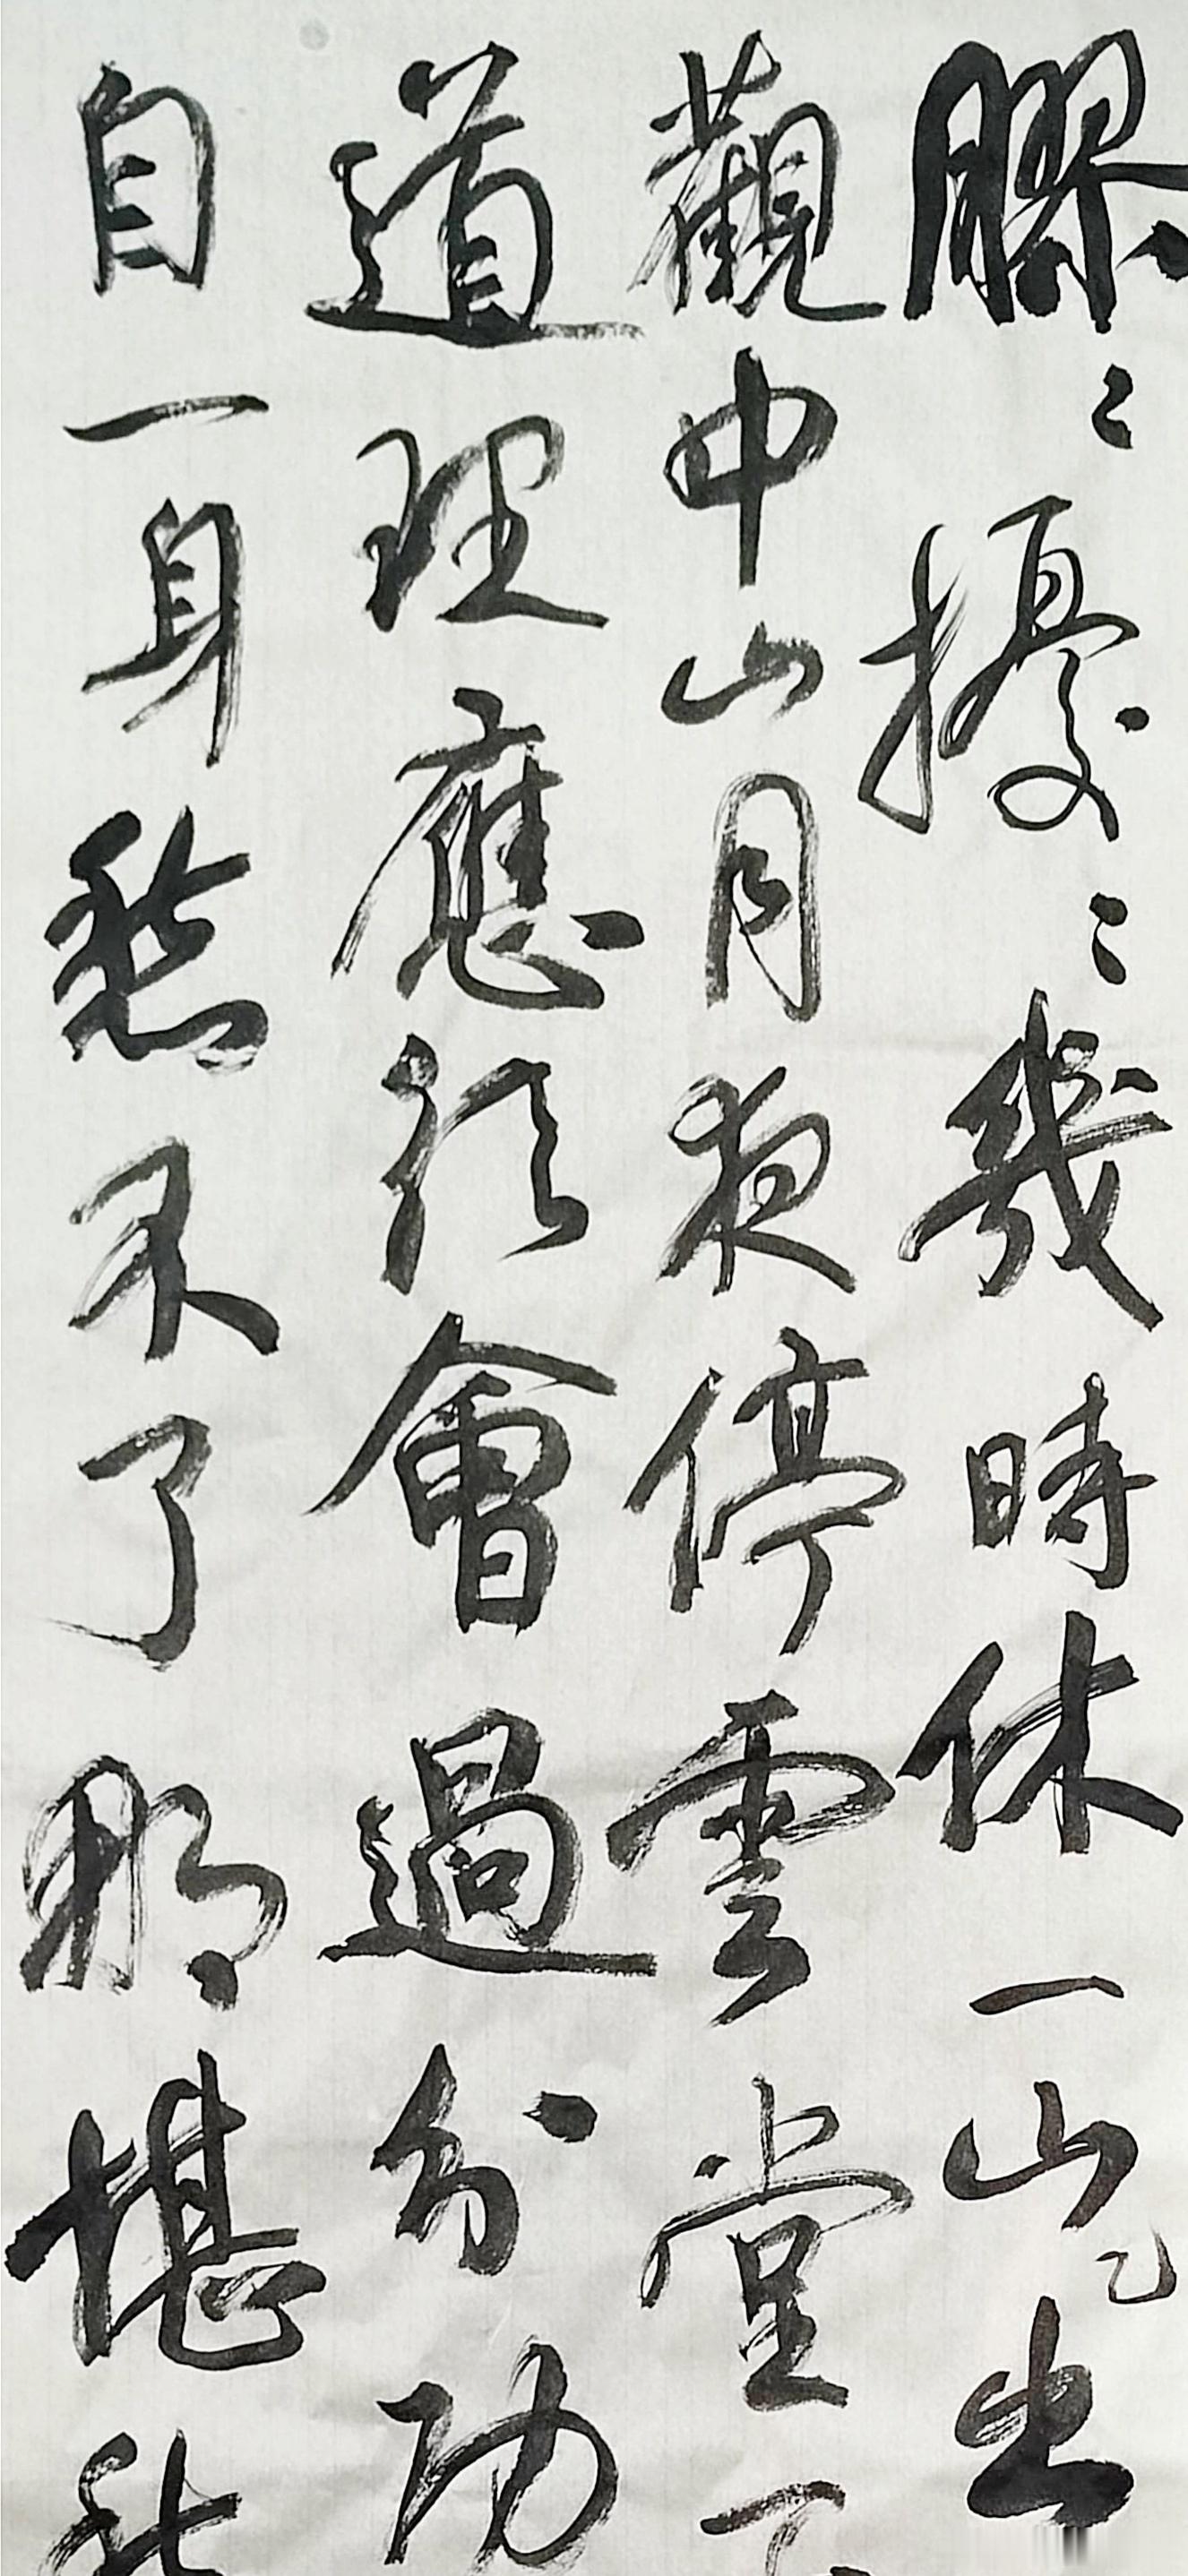 膠々擾々幾時休一山出
觀中山月夜停雲堂下
道理應須會過分功
自一身愁不了那堪